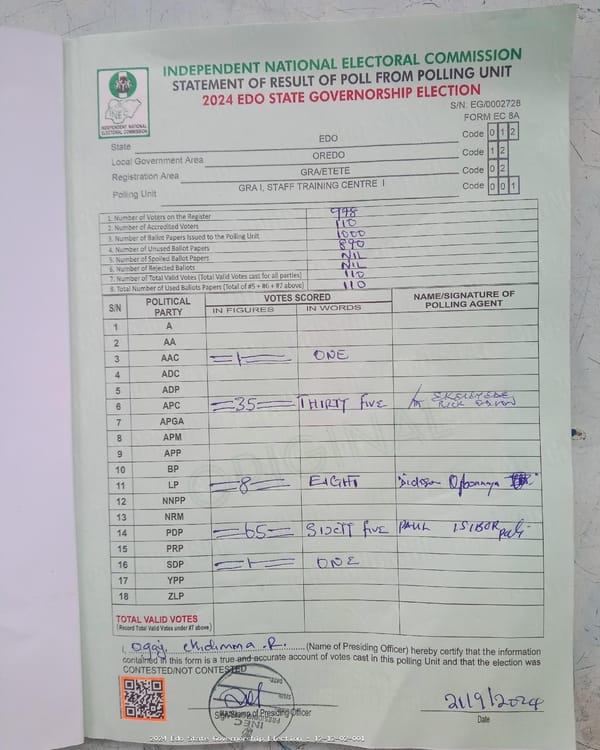 INDEPENDENT NATIONAL ELECTORAL COMMISSION
STATEMENT OF RESULT OF POLL FROM POLLING UNIT
2024 EDO STATE GOVERNORSHIP ELECTION
INEC
INDEPENDENT NATIONAL ELECTORAL COMMISSION
S/N: EG/0002728
FORM EC 8A
State EDO Code 0 1 2
Local Government Area OREDO Code 1 2
Registration Area GRA/ETETE Code 0 2
Polling Unit GRA I, STAFF TRAINING CENTRE I Code 0 0 1
1. Number of Voters on the Register 998
2. Number of Accredited Voters 110
3. Number of Ballot Papers Issued to the Polling Unit 1000
4. Number of Unused Ballot Papers 890
5. Number of Spoiled Ballot Papers NIL
6. Number of Rejected Ballots NIL
7. Number of Total Valid Votes (Total Valid Votes cast for all parties) 110
8. Total Number of Used Ballots Papers (Total of #5 + #6 + #7 above) 110
S/N POLITICAL PARTY VOTES SCORED NAME/SIGNATURE OF POLLING AGENT
IN FIGURES IN WORDS
1 A
2 AA
3 AAC 1 ONE
4 ADC
5 ADP
6 APC 35 THIRTY FIVE
7 APGA
8 APM
9 APP
10 BP
11 LP 8 EIGHT
12 NNPP
13 NRM
14 PDP 65 SIXTY FIVE PAUL ISIBOR
15 PRP
16 SDP 1 ONE
17 YPP
18 ZLP
TOTAL VALID VOTES
(Record Total Valid Votes under #7 above)
I, Oggy Chidimma .R. (Name of Presiding Officer) hereby certify that the information
contained in this form is a true and accurate account of votes cast in this polling Unit and that the election was
CONTESTED/NOT CONTESTED
of Presiding Officer
21/9/2024
Date
INEC
2024 Edo State Governorship Election - 12-12-02-001